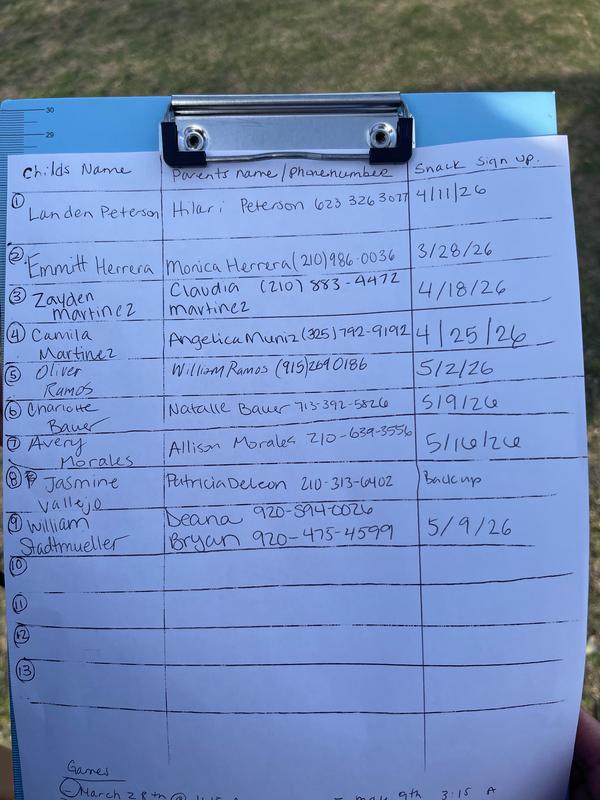 30
29
Childs Name Parents name/phonenumber Snack sign up.
① Landen Peterson Hilari Peterson 623 326 3077 4/11/26
② Emmitt Herrera Monica Herrera (210) 986-0036 3/28/26
③ Zayden Claudia (210) 883-4472 4/18/26
martinez martinez
④ Camila Angelica Muniz (325) 792-9192 4/25/26
Martinez
⑤ Oliver William Ramos (915) 269 0186 5/2/26
Ramos
⑥ Charlotte Natalie Bauer 713-392-5826 5/9/26
Bauer
⑦ Avery Allison Morales 210-639-3556 5/16/26
Morales
⑧ Jasmine Patricia DeLeon 210-313-6402 Back up
Vallejo
⑨ William Deana 920-594-0026 5/9/26
Stadtmueller Bryan 920-475-4599
⑩
⑪
⑫
⑬
Games
- March 28th @ may 9th 3:15 A